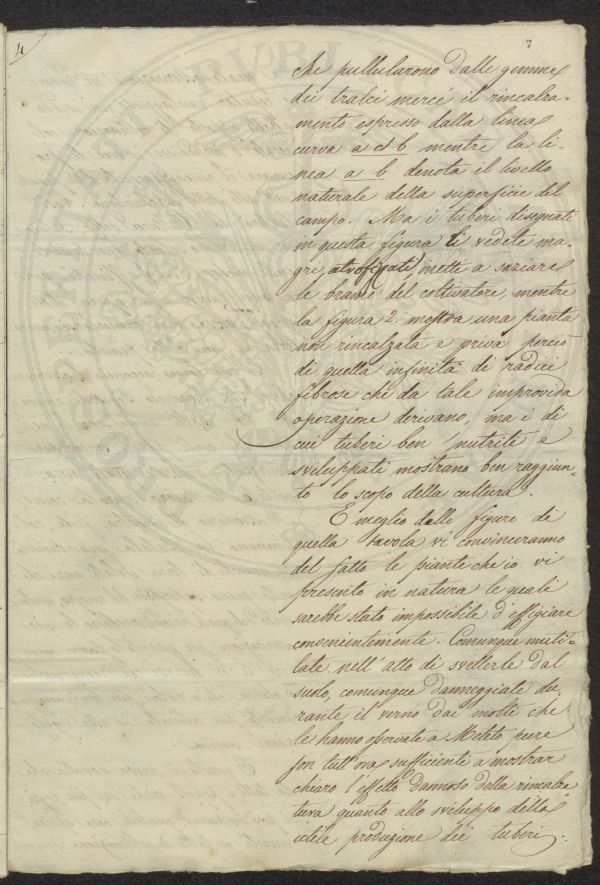 4
7
che pullularono dalle gemme
dei tralci mercé il rincalza-
mento espresso dalla linea
curva a d b mentre la li-
nea a b denota il livello
naturale della superficie del
campo. Ma i tuberi disegnati
in questa figura li vedete ma-
gri atrofizati, inetti a saziare
le brame del coltivatore, mentre
la figura 2. mostra una pianta
non rincalzata e priva perciò
di quella infinità di radici
fibrose che da tale improvida
operazione derivano, ma i di
cui tuberi ben nutriti e
sviluppati mostrano ben raggiun-
to lo scopo della cultura.
E meglio dalle figure di
quella tavola vi convinceranno
del fatto le piante che io vi
presento in natura le quali
sarebbe stato impossibile d'effigiare
convenientemente. Comunque muti-
late nell'atto di svellerle dal
suolo, comunque danneggiate du-
rante il verno dai molti che
le hanno osservate a Meleto pure
son tutt'ora sufficienti a mostrar
chiaro l'effetto dannoso della rincalza
tura quanto allo sviluppo della
utile produzione dei tuberi.